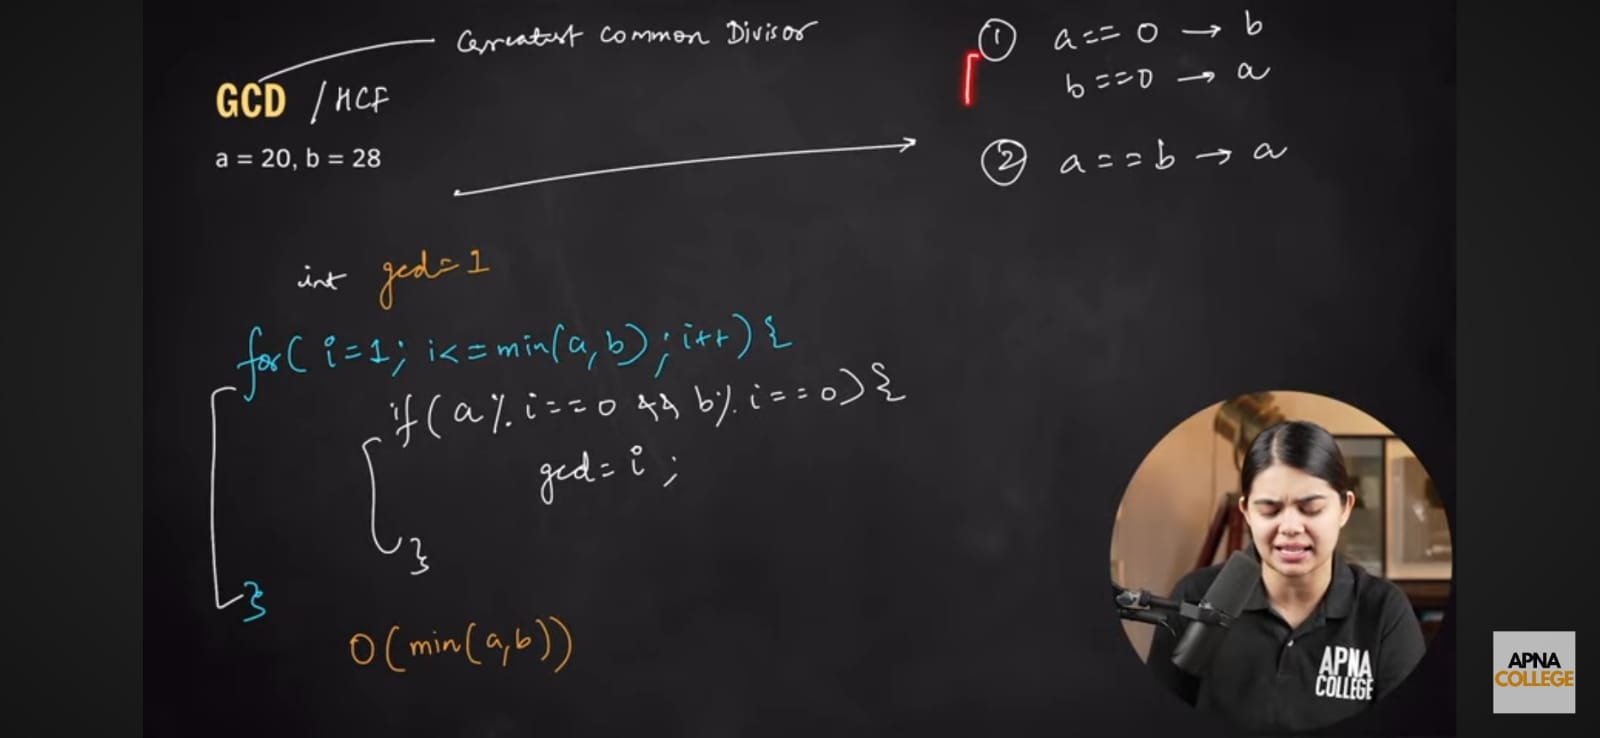 Greatest Common Divisor
GCD / HCF
a = 20, b = 28
① a == 0 → b
b == 0 → a
② a == b → a
int gcd = 1
for( i=1; i<=min(a,b); i++) {
if( a % i == 0 && b % i == 0) {
gcd = i ;
}
}
O(min(a,b))
APNA
COLLEGE
APNA
COLLEGE